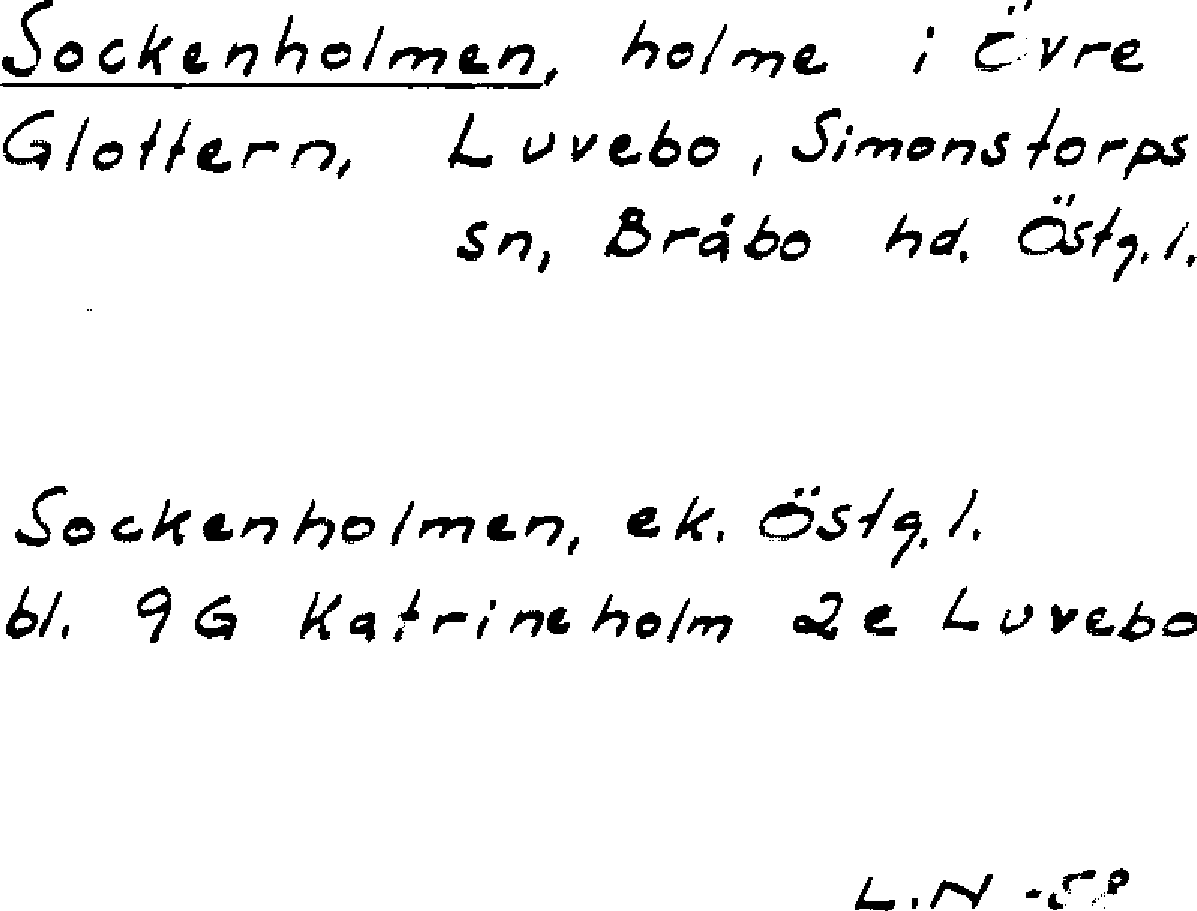 Sockenholmen, holme i Övre
Glottern, Luvebo, Simonstorps
sn, Bråbo hd. Östg. l.
Sockenholmen, ek. Östg. l.
bl. 9G Katrineholm 2e Luvebo
L.N -58